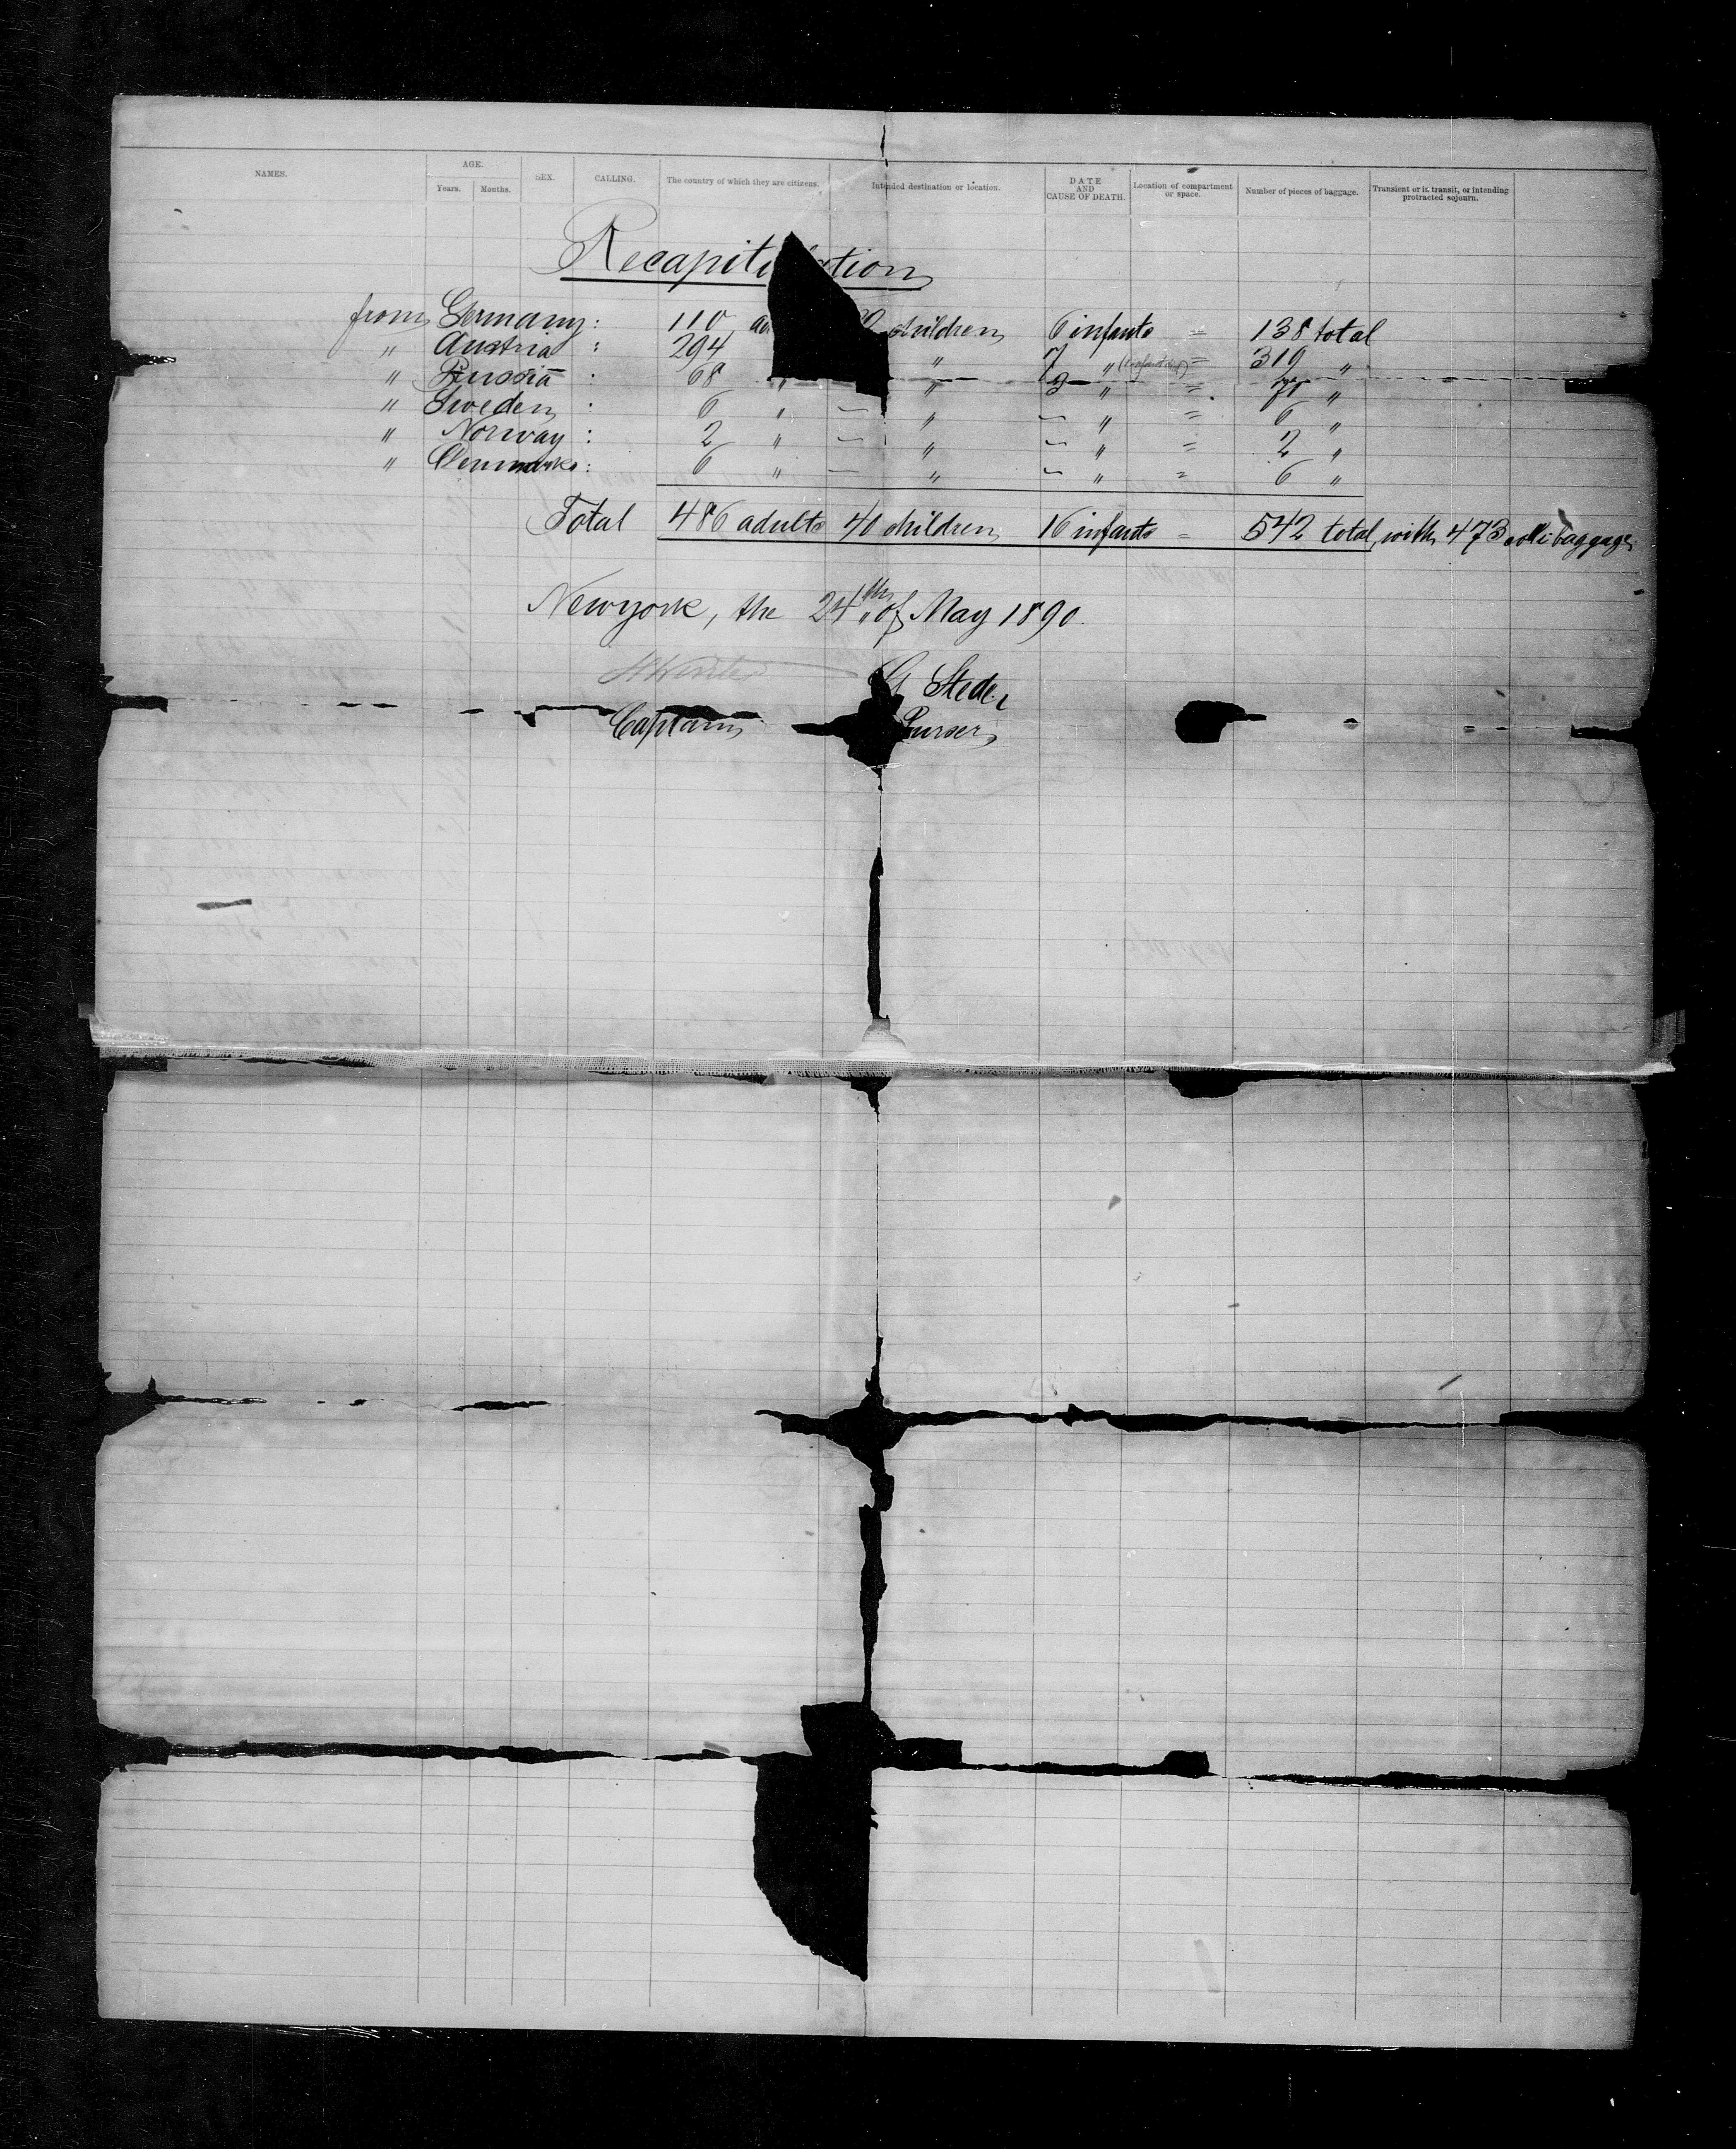 NAMES. AGE. Years. Months. SEX. CALLING. The country of which they are citizens. Intended destination or location. DATE AND CAUSE OF DEATH. Location of compartment or space. Number of pieces of baggage. Transient or in transit, or intending protracted sojourn.
Recapit ation
from Germany: 110 children 6 infants = 138 total
" Austria : 294 " 7 " = 319 "
" Russia : 68 " " 3 " = 71 "
" Sweden : 6 " — " — " = 6 "
" Norway : 2 " — " — " = 2 "
" Denmark : 6 " — " — " = 6 "
Total 486 adults 40 children 16 infants = 542 total, with 473 colli baggage
Newyork, the 24th of May 1890.
G Steder
Captain Purser